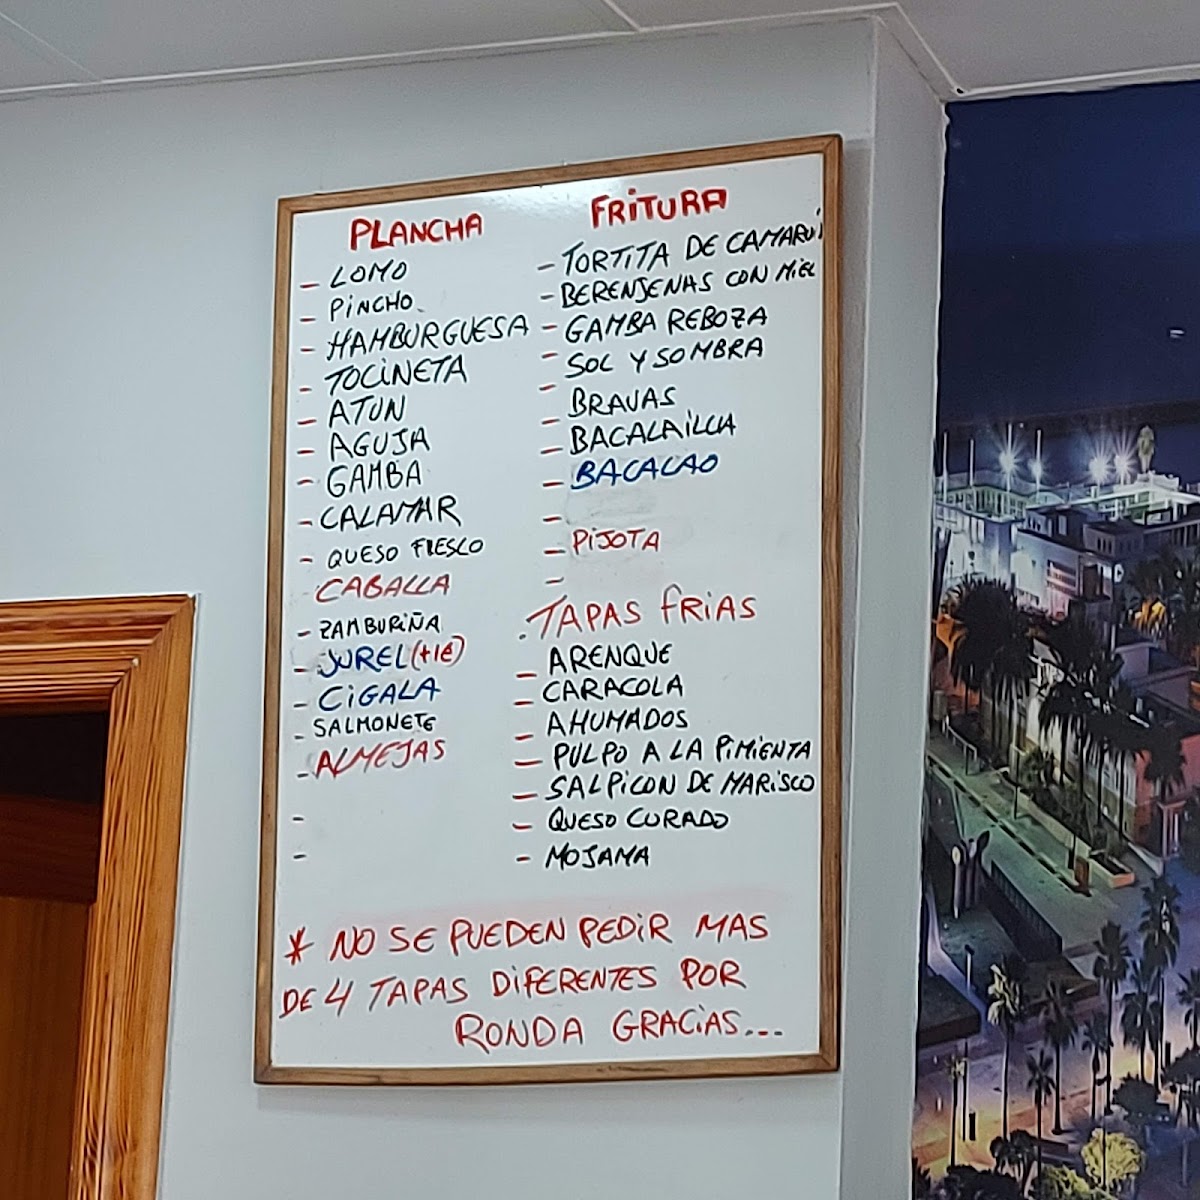 PLANCHA
- LOMO
- PINCHO
- HAMBURGUESA
- TOCINETA
- ATUN
- AGUJA
- GAMBA
- CALAMAR
- QUESO FRESCO
- CABALLA
- ZAMBURIÑA
- JUREL (+1€)
- CIGALA
- SALMONETE
- ALMEJAS
-
-
FRITURA
- TORTITA DE CAMARÓ
- BERENJENAS CON MIEL
- GAMBA REBOZA
- SOL Y SOMBRA
- BRAVAS
- BACALAILLA
- BACALAO
-
- PIJOTA
-
. TAPAS FRIAS
- ARENQUE
- CARACOLA
- AHUMADOS
- PULPO A LA PIMIENTA
- SALPICON DE MARISCO
- QUESO CURADO
- MOJAMA
* NO SE PUEDEN PEDIR MAS
DE 4 TAPAS DIFERENTES POR
RONDA GRACIAS...